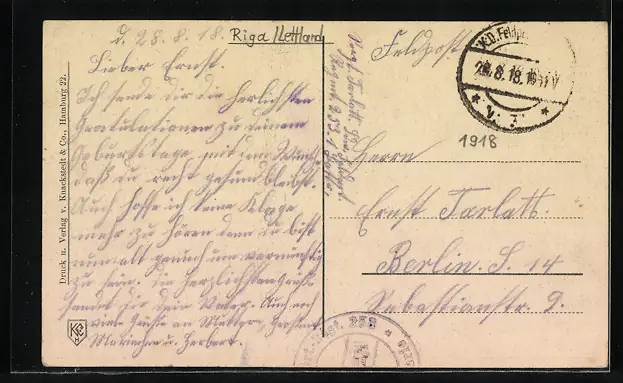 d. 28.8.18.
Riga / Lettland
Lieber Ernst.
Ich sende dir die herlichsten
Gratulationen zu deinem
Geburtstage mit dem Wunsch
daß du recht gesund bleibst.
Auch hoffe ich keine Klage
mehr zu hören denn du bist
nun alt genuch um vernünftig
zu sein. Die herzlichsten Grüße
sendet dir dein Vater. Auch noch
viele Grüße an Mutter,
Mariechen u. Herbert.
Druck u. Verlag v. Knackstedt & Co., Hamburg 22.
Feldpost
K.D. Feldp
28.8.18.
1918
Herrn
Ernst Tarlatt.
Berlin. S. 14
Sebastianstr. 2.
253